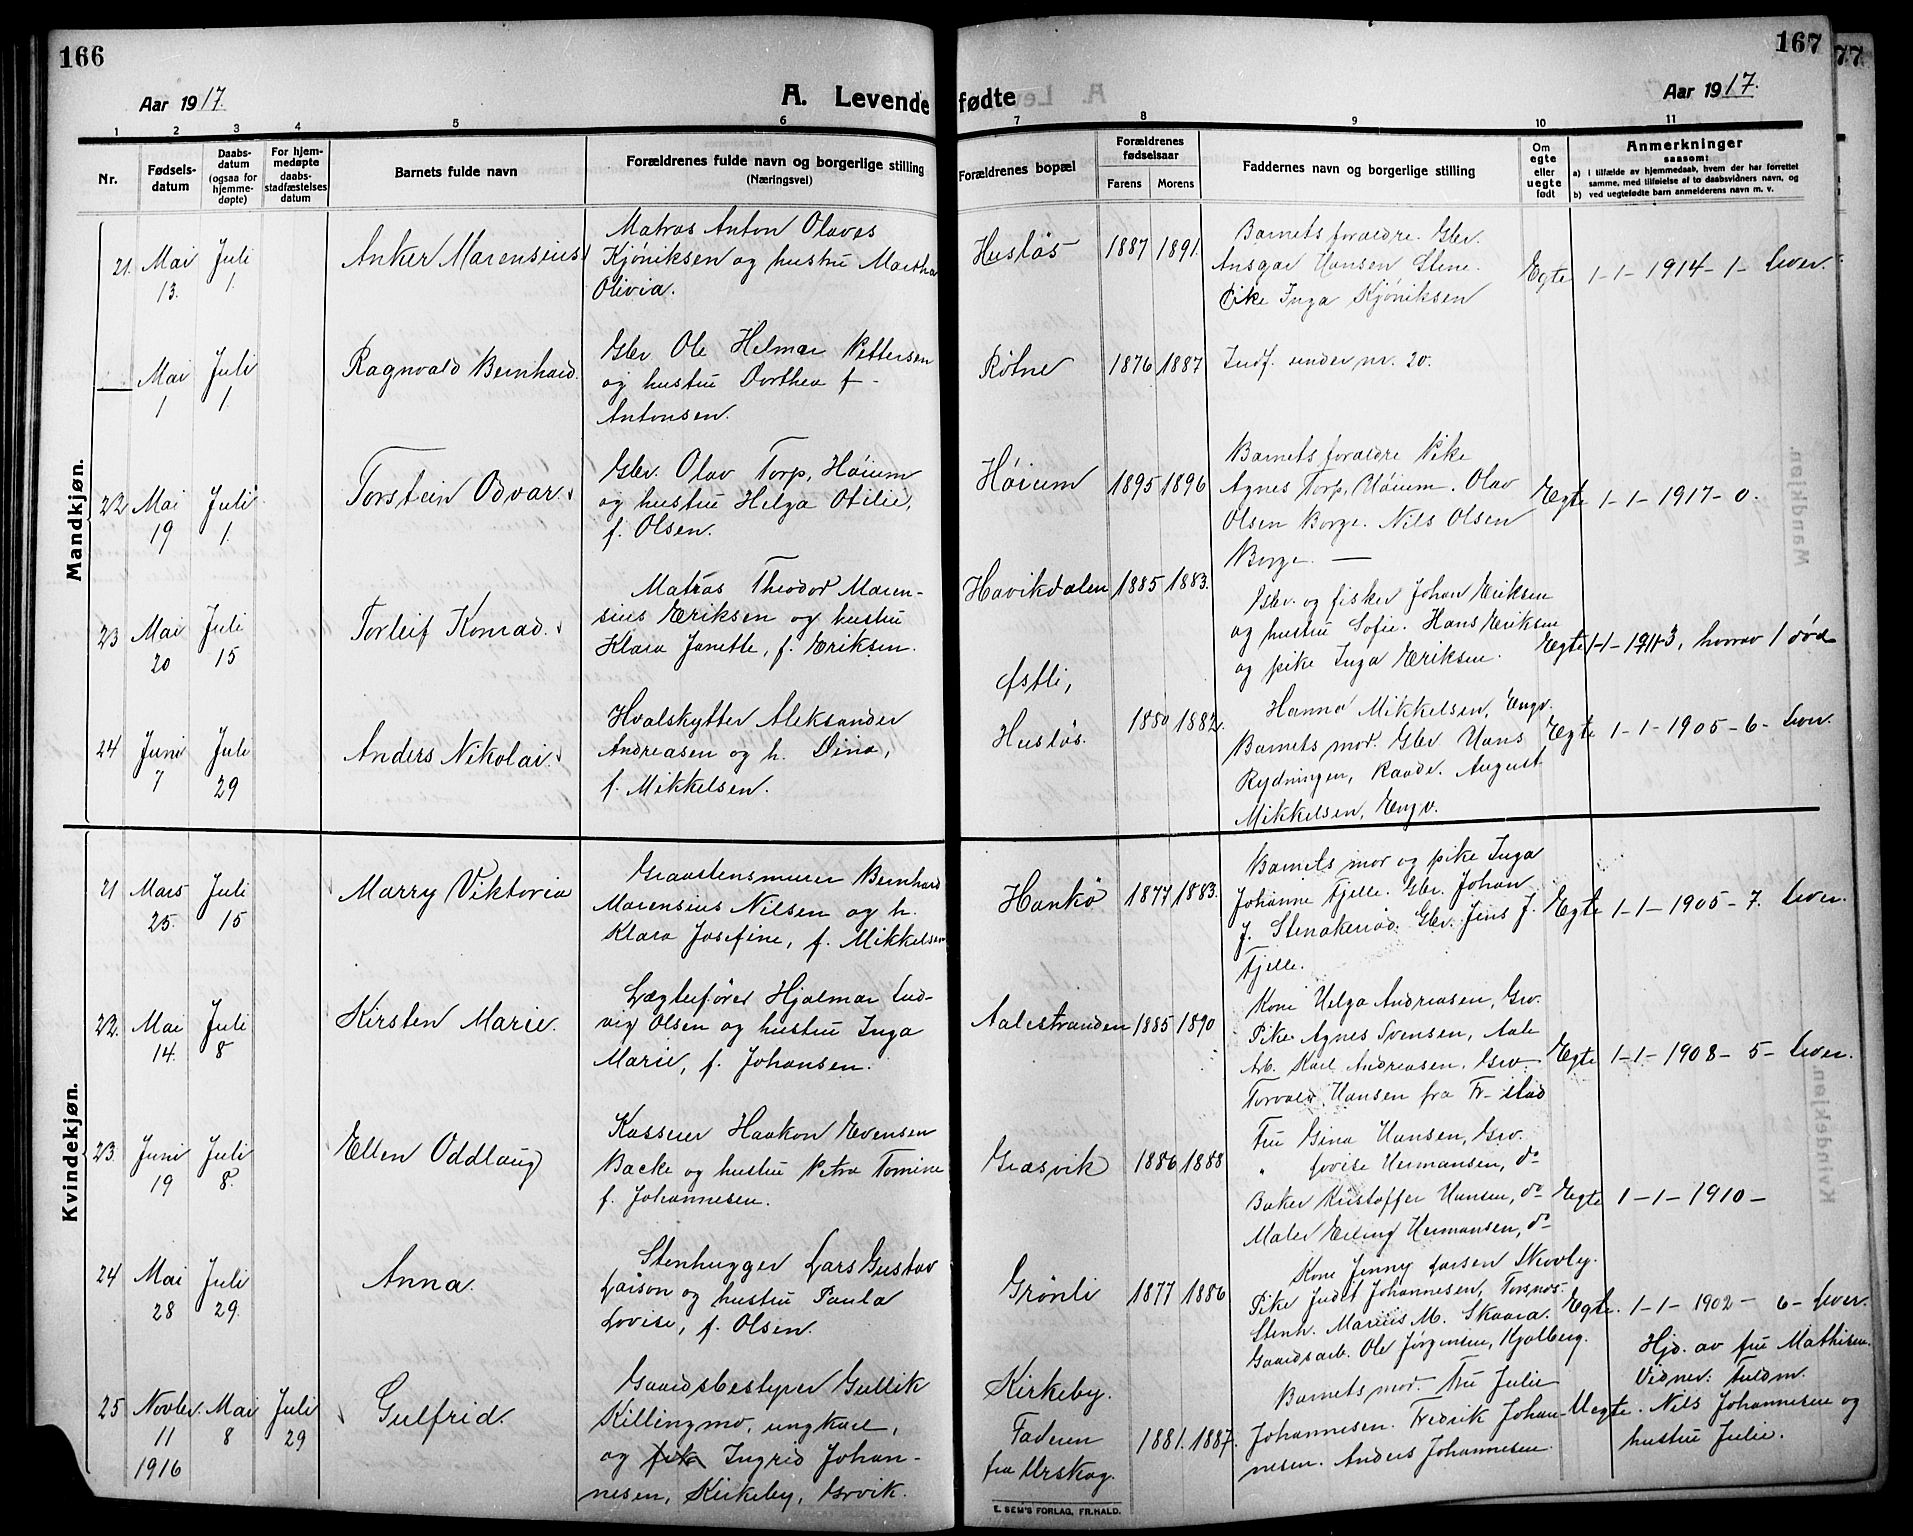 166
167
77
Aar 1917
A. Levende fødte
Aar 1917.
1 2 3 4 5 6 7 8 9 10 11
Nr.
Fødsels-
datum
Daabs-
datum
(ogsaa for
hjemme-
døpte)
For hjem-
medøpte
daabs-
stadfæstelses
datum
Barnets fulde navn
Forældrenes fulde navn og borgerlige stilling
(Næringsvei)
Forældrenes bopæl
Forældrenes
fødselsaar
Farens Morens
Faddernes navn og borgerlige stilling
Om
egte
eller
uegte
født
Anmerkninger
saasom:
a) i tilfælde av hjemmedaab, hvem der har forrettet
samme, med tilføielse af to daabsvidners navn, og
b) ved uegtefødte barn anmelderens navn m. v.
Mandkjøn.
21. Mai
13.
Juli
1.
Anker Marensius
Matros Anton Olaves
Kjøniksen og hustru Martha
Olivia.
Husløs
1887 1891.
Barnets forældre. Gbr.
Ansgar Hansen Stene.
Pike Inga Kjøniksen
Egte 1-1-1914-1- lever.
Mai
1
Juli
1.
Ragnvald Bernhard.
Gbr Ole Helmar Pettersen
og hustru Dorthea f-
Antonsen.
Røtne
1876 1887
Indf. under nr. 20.
22 Mai
19
Juli
1.
Torstein Odvar
Gbr. Olav Torp, Høium
og hustru Helga Otilie,
f. Olsen.
Høium
1895 1896
Barnets forældre Pike
Agnes Torp, Høium. Olav
Olsen Borge. Nils Olsen
Borge. —
Egte 1-1-1917-0.
23 Mai
20
Juli
15
Torleif Konrad.
Matros Theodor Maren-
sius Eriksen og hustru
Klara Janette, f. Eriksen.
Havikdalen
1885 1883.
Gbr. og fisker Johan Eriksen
og hustru Sofie. Hans Eriksen
og pike Inga Eriksen.
Egte 1-1-1913, horav 1 død
24 Juni
7
Juli
29
Anders Nikolai.
Hvalskytter Aleksander
Andreasen og h. Dina,
f. Mikkelsen.
Østli,
Husløs.
1880 1882.
Hanna Mikkelsen, Engv.
Barnets mor. Gbr Hans
Rydningen, Raade. August
Mikkelsen, Engv.
Egte 1-1-1905-6- lever.
Kvindekjøn.
21 Mars
25.
Juli
15
Marry Viktoria
Graastensmurer Bernhard
Marensius Nilsen og h.
Klara Josefine, f. Mikkelsen
Hankø
1877 1883.
Barnets mor og pike Inga
Johanne Fjelle. Gbr. Johan
J. Stenakerød. Gbr. Jens J.
Fjelle.
Egte 1-1-1905-7. lever.
22. Mai
14.
Juli
8
Kirsten Marie.
Lægterfører Hjalmar Lud-
vig Olsen og hustru Inga
Marie, f. Johansen.
Aalestranden
1885 1890
Kone Helga Andreasen, Grv.
Pike Agnes Svensen, Aale
Arb. Karl Andreasen, Grv
Torvald Hansen fra Fr-stad
Egte 1-1-1908-5- lever.
23. Juni
19
Juli
8.
Ellen Oddlaug
Kasserer Haakon Evensen
Backe og hustru Petra Tomine
f. Johannesen.
Græsvik
1886 1888
Fru Gina Hansen, Grv.
" Lovise Hermansen, do
Baker Kristoffer Hansen, do
Maler Erling Hermansen, do
Egte 1-1-1910-
24 Mai
28
Juli
29.
Anna.
Stenhugger Lars Gustav
Larson og hustru Paula
Lovise, f. Olsen.
Grønli
1877 1886
Kone Jenny Larsen Skovby.
Pike Judit Johannesen, Torsnæs.
Stenh. Marius M. Skaara.
Gaardsarb. Ole Jørgensen, Kjølberg.
Egte. 1-1-1902-6- lever.
25 Novbr.
11
1916
Mai
8
Juli
29
Gulfrid.
Gaardsbestyrer Gullik
Killingmo, ungkarl,
og pike Ingrid Johan-
nesen, Kirkeby, Grvik.
Kirkeby.
Faderen
fra Urskog.
1881. 1887.
Barnets mor. Fru Julie
Johannesen. Fredrik Johan-
nesen. Anders Johannesen.
Uegte.
Hjd. av fru Mathisen.
Vidner: Fuldm.
Nils Johannesen og
hustru Julie.
E. SEM'S FORLAG, FR.HALD.